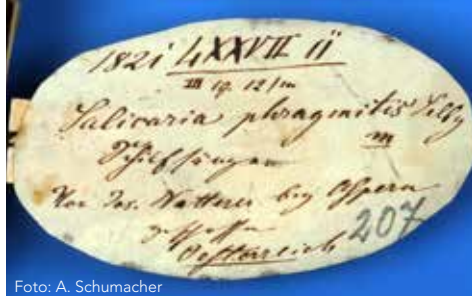 1821 LXXVII ii
III 19. 12/m
Salicaria phragmitis Selby
m
Schilfsänger
Von Jos. Natterer bey Aspern
geschossen
Oesterreich
207
Foto: A. Schumacher